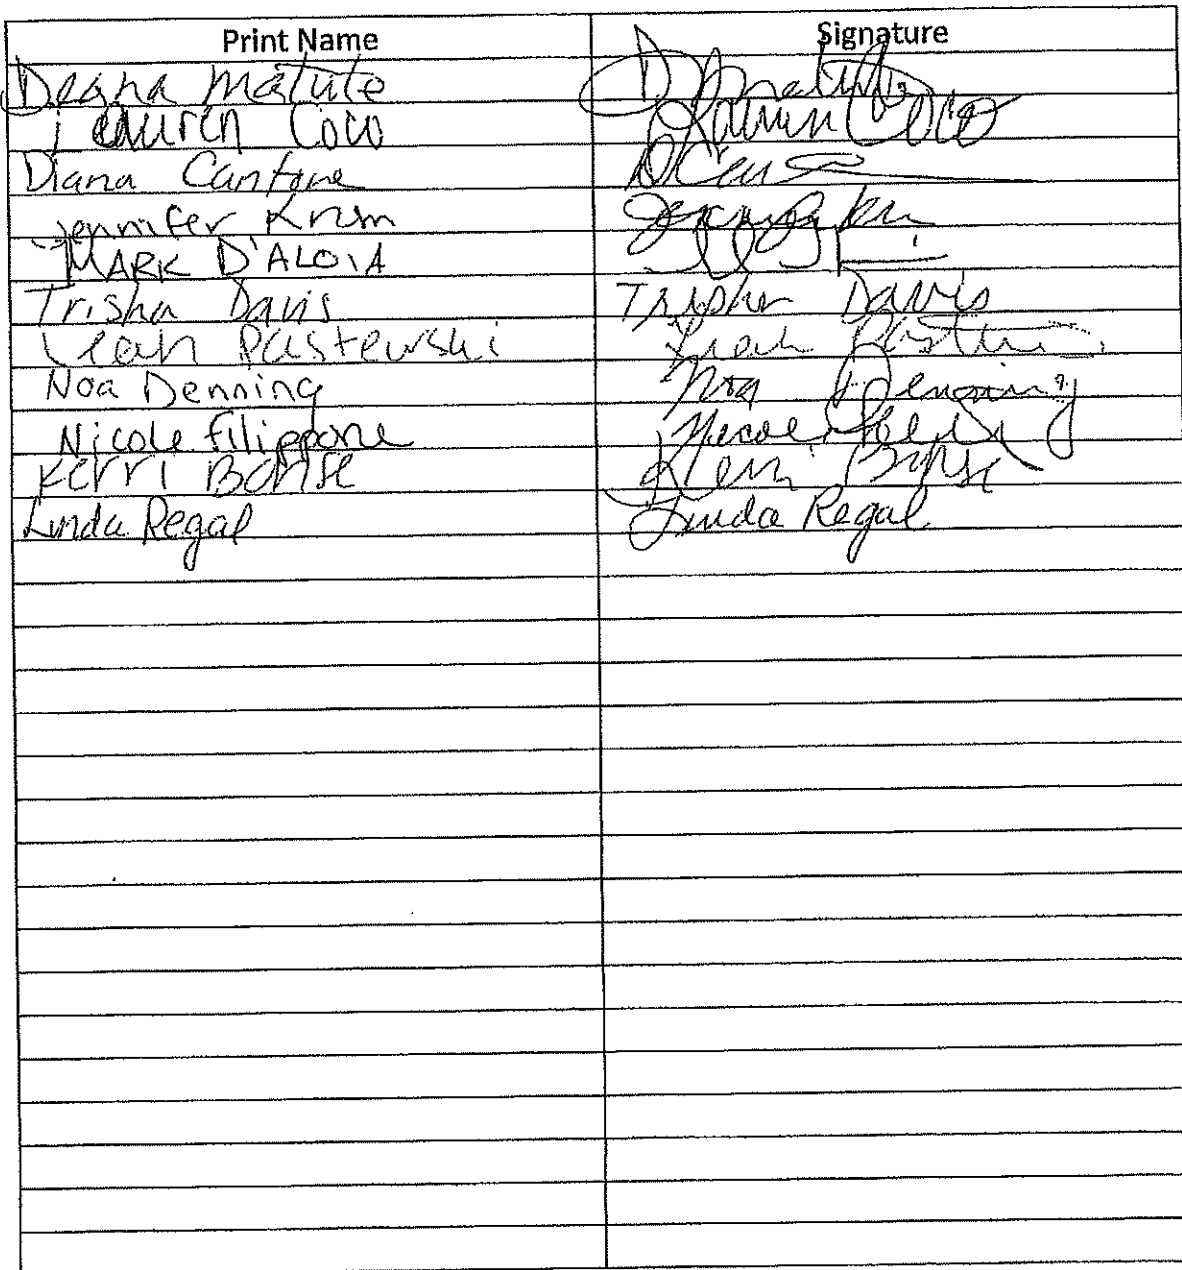 Print Name Signature
Deana Matute D Matute
Lauren Coco Lauren Coco
Diana Cantone
Jennifer Krum
MARK D'ALOIA
Trisha Davis Trisha Davis
Leah Pastewski Leah
Noa Denning Noa Denning
Nicole Filippone Nicole
Kerri Bohse Kerri
Linda Regal Linda Regal